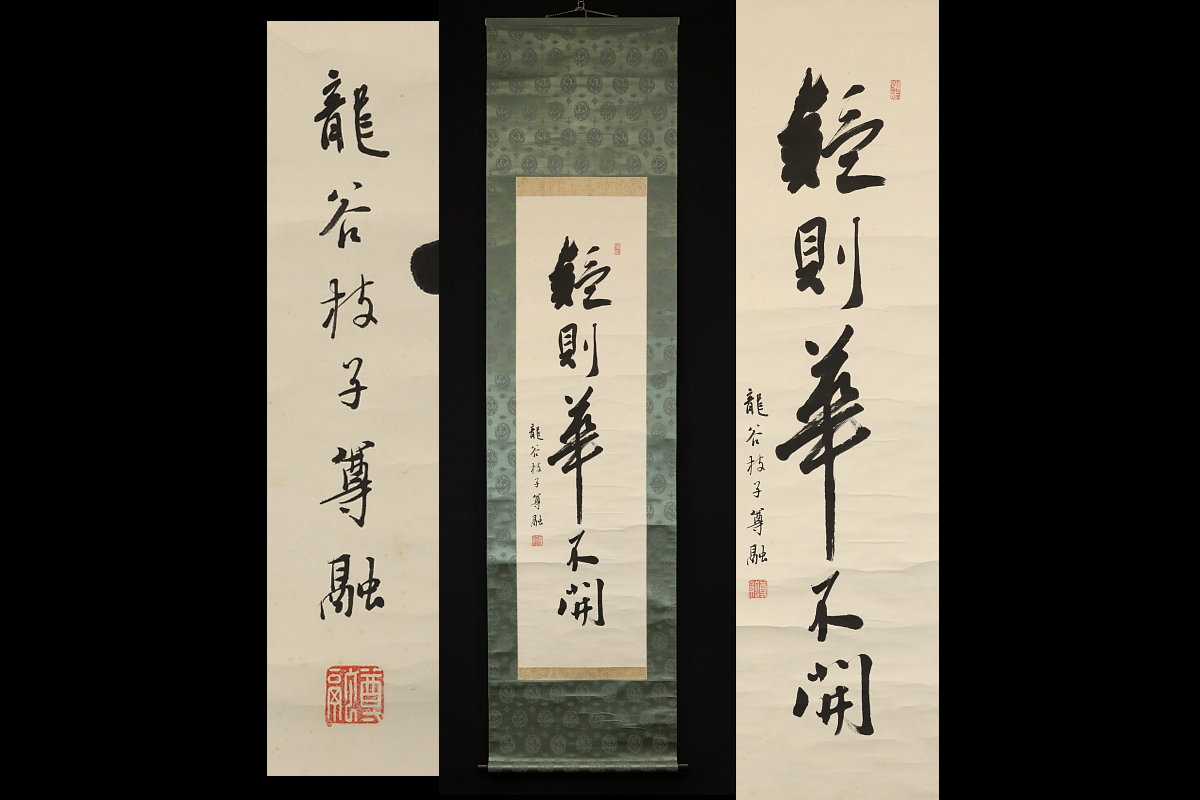 龍谷枝子尊融
尊融
疑則華不開
龍谷枝子尊融
尊融
疑則華不開
龍谷枝子尊融
尊融